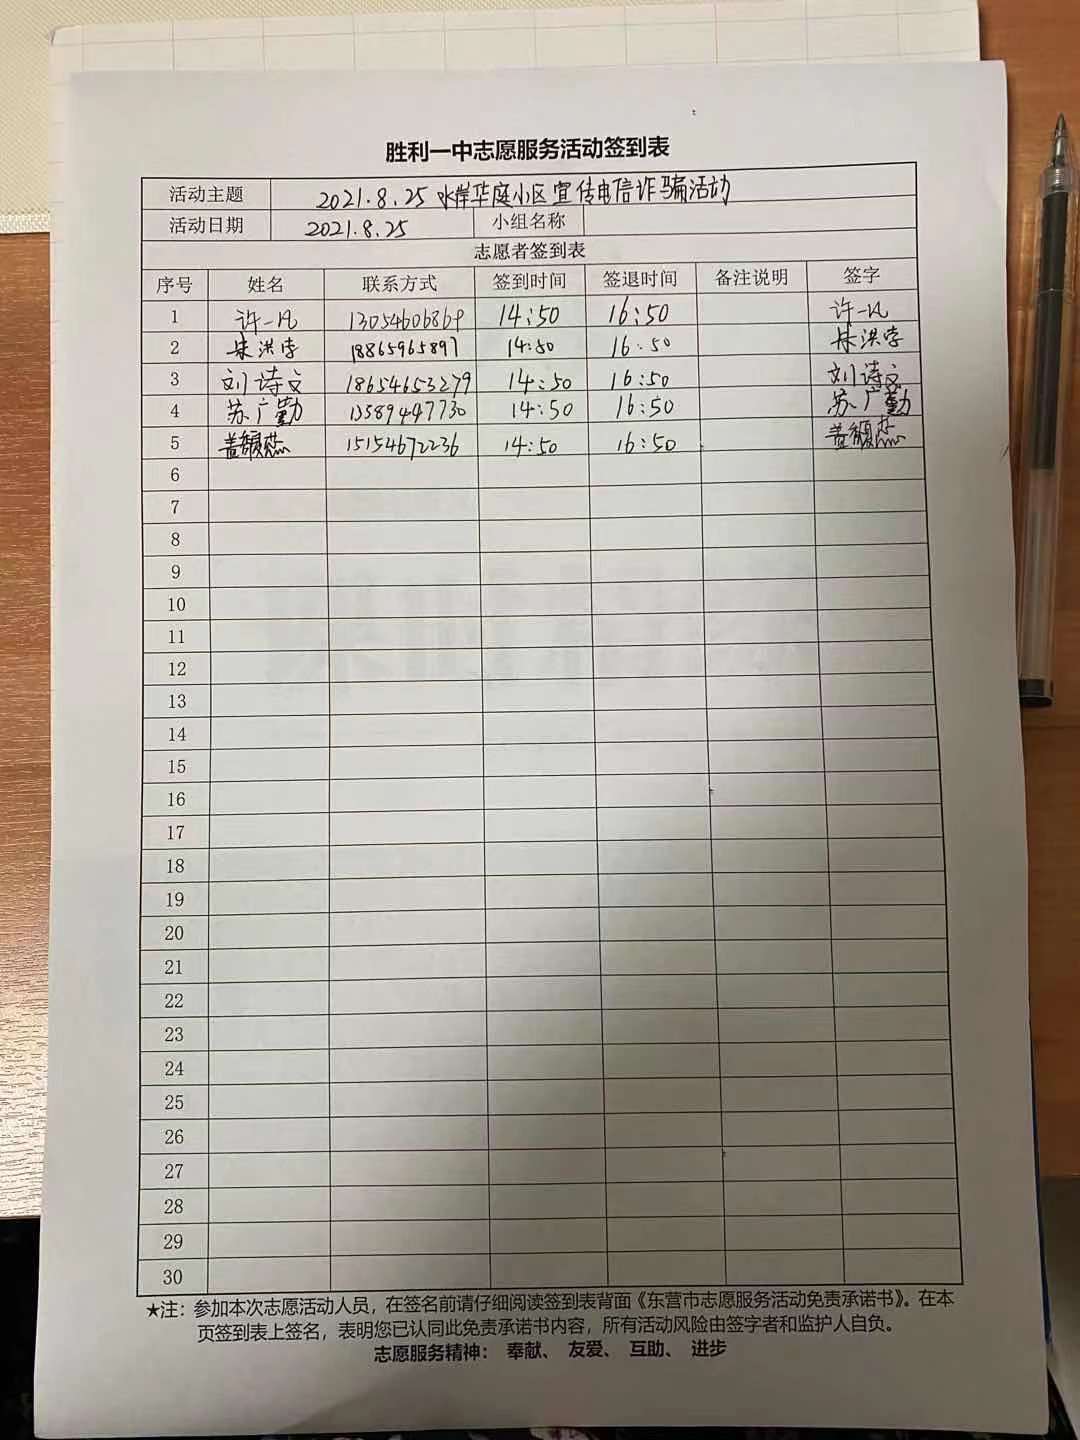 胜利一中志愿服务活动签到表
活动主题 2021.8.25 水岸华庭小区宣传电信诈骗活动
活动日期 2021.8.25 小组名称
志愿者签到表
序号 姓名 联系方式 签到时间 签退时间 备注说明 签字
1 许一凡 13054606869 14:50 16:50 许一凡
2 朱洪宇 18865965897 14:50 16:50 朱洪宇
3 刘诗文 18654653279 14:50 16:50 刘诗文
4 苏广勤 13589447730 14:50 16:50 苏广勤
5 盖 15154672236 14:50 16:50 盖
6
7
8
9
10
11
12
13
14
15
16
17
18
19
20
21
22
23
24
25
26
27
28
29
30
★注：参加本次志愿活动人员，在签名前请仔细阅读签到表背面《东营市志愿服务活动免责承诺书》。在本
页签到表上签名，表明您已认同此免责承诺书内容，所有活动风险由签字者和监护人自负。
志愿服务精神： 奉献、 友爱、 互助、 进步